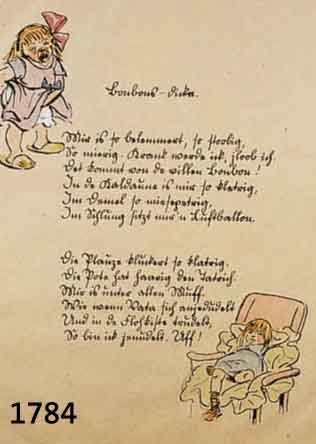 Bonbons-dicke.
Mir is so belemmert, so stoobig,
So mierig. Krank werde ick, jloob ich.
Det kommt von de villen Bonbon!
In de Kaldaune is mir so klatrig,
Im Demel so miesepetrig,
Im Schlung sitzt mir'n Luftballon.
Die Plauze kluckert so klatrig.
Die Pote hat haarig den Tatrich.
Mir is unter allen Muff.
Wie wenn Vata sich anjedudelt
Und in de Flohkiste trudelt,
So bin ick jenudelt. Uff!
1784